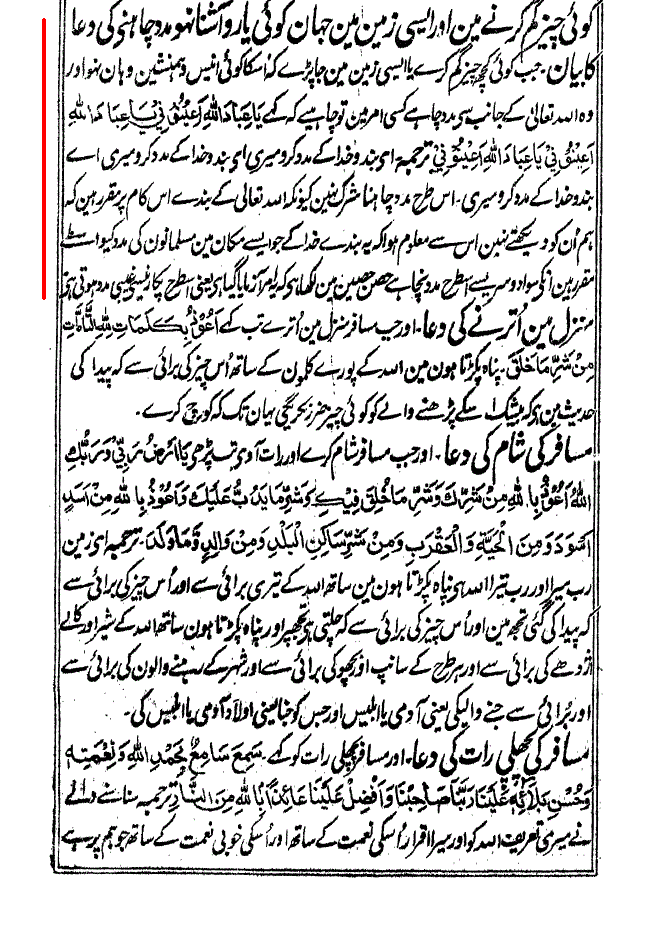 کوئی چیز گم کرنے مین اور ایسی زمین مین جہان کوئی یار و آشنا نہو مدد چاہنی کی دعا
کا بیان۔ جب کوئی کچھ چیز گم کرے یا ایسی زمین مین جا پڑے کہ اُسکا کوئی انیس و ہمنشین وہان نہو اور
وہ اللہ تعالیٰ کے جانب سی مدد چاہے کسی امر مین تو چاہیے کہ کہے یَا عِبَادَ اللّٰهِ اَعِیْنُوْنِیْ یَا عِبَادَ اللّٰهِ
اَعِیْنُوْنِیْ یَا عِبَادَ اللّٰهِ اَعِیْنُوْنِیْ ترجمہ ای بندو خدا کے مدد کرو میری ای بندو خدا کے مدد کرو میری اے
بندو خدا کے مدد کرو میری۔ اس طرح مدد چاہنا شرک نہین کیونکہ اللہ تعالی کے بندے اس کام پر مقرر ہین کہ
ہم اُن کو دیکھتے نہین اس سے معلوم ہوا کہ یہ بندے خدا کے جو ایسے مکان مین مسلمانون کی مدد کیواسطے
مقرر ہین انکی سوا دوسریسے اسطرح مدد نچاہے حصن حصین مین لکھا ہی کہ یہ امر آزمایا گیا ہی یعنی اسطرح پکارنیسے غیبی مدد ہوتی ہی
منزل مین اُترنے کی دعا۔ اور جب مسافر منزل مین اُترے تب کہے اَعُوْذُ بِکَلِمَاتِ اللّٰهِ التَّامَّاتِ
مِنْ شَرِّ مَا خَلَقَ۔ پناہ پکڑتا ہون مین اللہ کے پورے کلمون کے ساتھ اُس چیز کی برائی سے کہ پیدا کی
حدیث مین ہی کہ بیشک اسکے پڑھنے والے کو کوئی چیز ضرر نکریگی یہان تک کہ کوچ کرے۔
مسافر کی شام کی دعا۔ اور جب مسافر شام کرے اور رات آوی تب پڑھی یَا اَرْضُ رَبِّیْ وَرَبُّكِ
اللّٰهُ اَعُوْذُ بِاللّٰهِ مِنْ شَرِّكِ وَشَرِّ مَا خُلِقَ فِیْكِ وَشَرِّ مَا یَدُبُّ عَلَیْكِ وَاَعُوْذُ بِاللّٰهِ مِنْ اَسَدٍ
اَسْوَدَ وَمِنَ الْحَیَّةِ وَالْعَقْرَبِ وَمِنْ شَرِّ سَاکِنِ الْبَلَدِ وَمِنْ وَالِدٍ وَّمَا وَلَدَ۔ ترجمہ ای زمین
رب میرا اور رب تیرا اللہ ہی پناہ پکڑتا ہون مین ساتھ اللہ کے تیری برائی سے اور اُس چیز کی برائی سے
کہ پیدا کی گئی تجھ مین اور اُس چیز کی برائی سے کہ چلتی ہی تجھپر اور پناہ پکڑتا ہون ساتھ اللہ کے شیر اور کالے
اژدھے کی برائی سے اور ہر طرح کے سانپ اور بچھو کی برائی سے اور شہر کے رہنے والون کی برائی سے
اور برائی سے جنے والیکی یعنی آدمی یا ابلیس اور جس کو جنا یعنی اولاد آدمی یا ابلیس کی۔
مسافر کی پچھلی رات کی دعا۔ اور مسافر پچھلی رات کو کہے۔ سَمِعَ سَامِعٌ بِحَمْدِ اللّٰهِ وَنِعْمَتِهٖ
وَحُسْنِ بَلَائِهٖ عَلَیْنَا رَبَّنَا صَاحِبْنَا وَاَفْضِلْ عَلَیْنَا عَائِذًا بِاللّٰهِ مِنَ النَّارِ ترجمہ سنا سننے والے
نے میری تعریف اللہ کو اور میرا اقرار اُسکی نعمت کے ساتھ اور اُسکی خوبی نعمت کے ساتھ جو ہم پر ہے